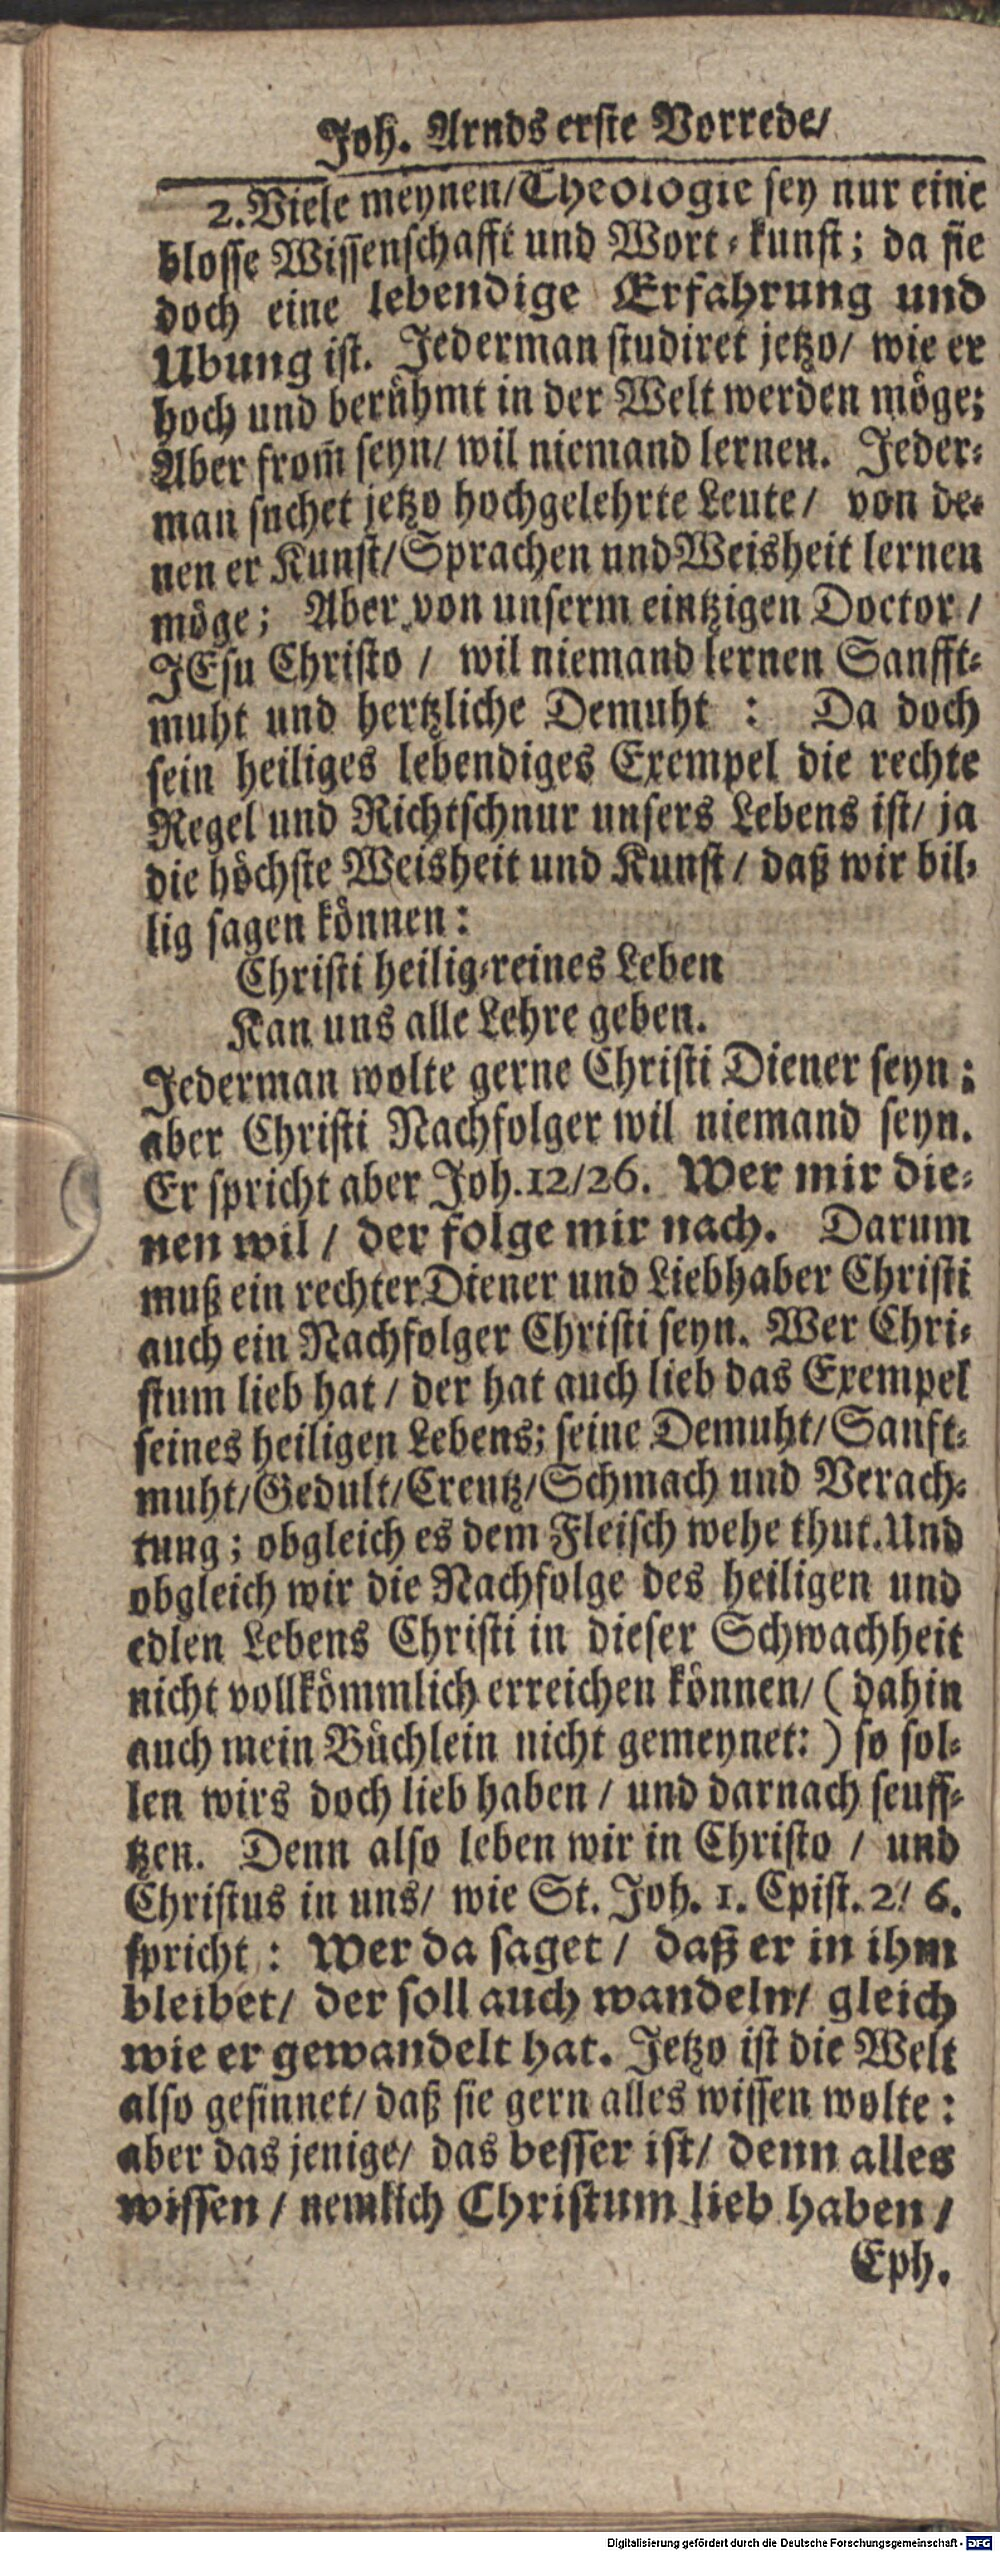 Joh. Arnds erste Vorrede/
2. Viele meynen/Theologie sey nur eine
blosse Wissenschafft und Wort-kunst; da sie
doch eine lebendige Erfahrung und
Ubung ist. Jederman studiret jetzo/ wie er
hoch und berühmt in der Welt werden möge;
Aber from̃ seyn/ wil niemand lernen. Jeder-
man suchet jetzo hochgelehrte Leute/ von de-
nen er Kunst/Sprachen und Weisheit lernen
möge; Aber von unserm eintzigen Doctor/
JEsu Christo/ wil niemand lernen Sanfft-
muht und hertzliche Demuht: Da doch
sein heiliges lebendiges Exempel die rechte
Regel und Richtschnur unsers Lebens ist/ ja
die höchste Weisheit und Kunst/ daß wir bil-
lig sagen können:
Christi heilig-reines Leben
Kan uns alle Lehre geben.
Jederman wolte gerne Christi Diener seyn;
aber Christi Nachfolger wil niemand seyn.
Er spricht aber Joh.12/26. Wer mir die-
nen wil/ der folge mir nach. Darum
muß ein rechter Diener und Liebhaber Christi
auch ein Nachfolger Christi seyn. Wer Chri-
stum lieb hat/ der hat auch lieb das Exempel
seines heiligen Lebens; seine Demuht/Sanft-
muht/Gedult/Creutz/Schmach und Verach-
tung; obgleich es dem Fleisch wehe thut. Und
obgleich wir die Nachfolge des heiligen und
edlen Lebens Christi in dieser Schwachheit
nicht vollkömmlich erreichen können/ (dahin
auch mein Büchlein nicht gemeynet:) so sol-
len wirs doch lieb haben/ und darnach seuff-
tzen. Denn also leben wir in Christo/ und
Christus in uns/ wie St. Joh. 1. Epist. 2/ 6.
spricht: Wer da saget/ daß er in ihm
bleibet/ der soll auch wandeln/ gleich
wie er gewandelt hat. Jetzo ist die Welt
also gesinnet/ daß sie gern alles wissen wolte:
aber das jenige/ das besser ist/ denn alles
wissen/ nemlich Christum lieb haben/
Eph.
Digitalisierung gefördert durch die Deutsche Forschungsgemeinschaft - DFG